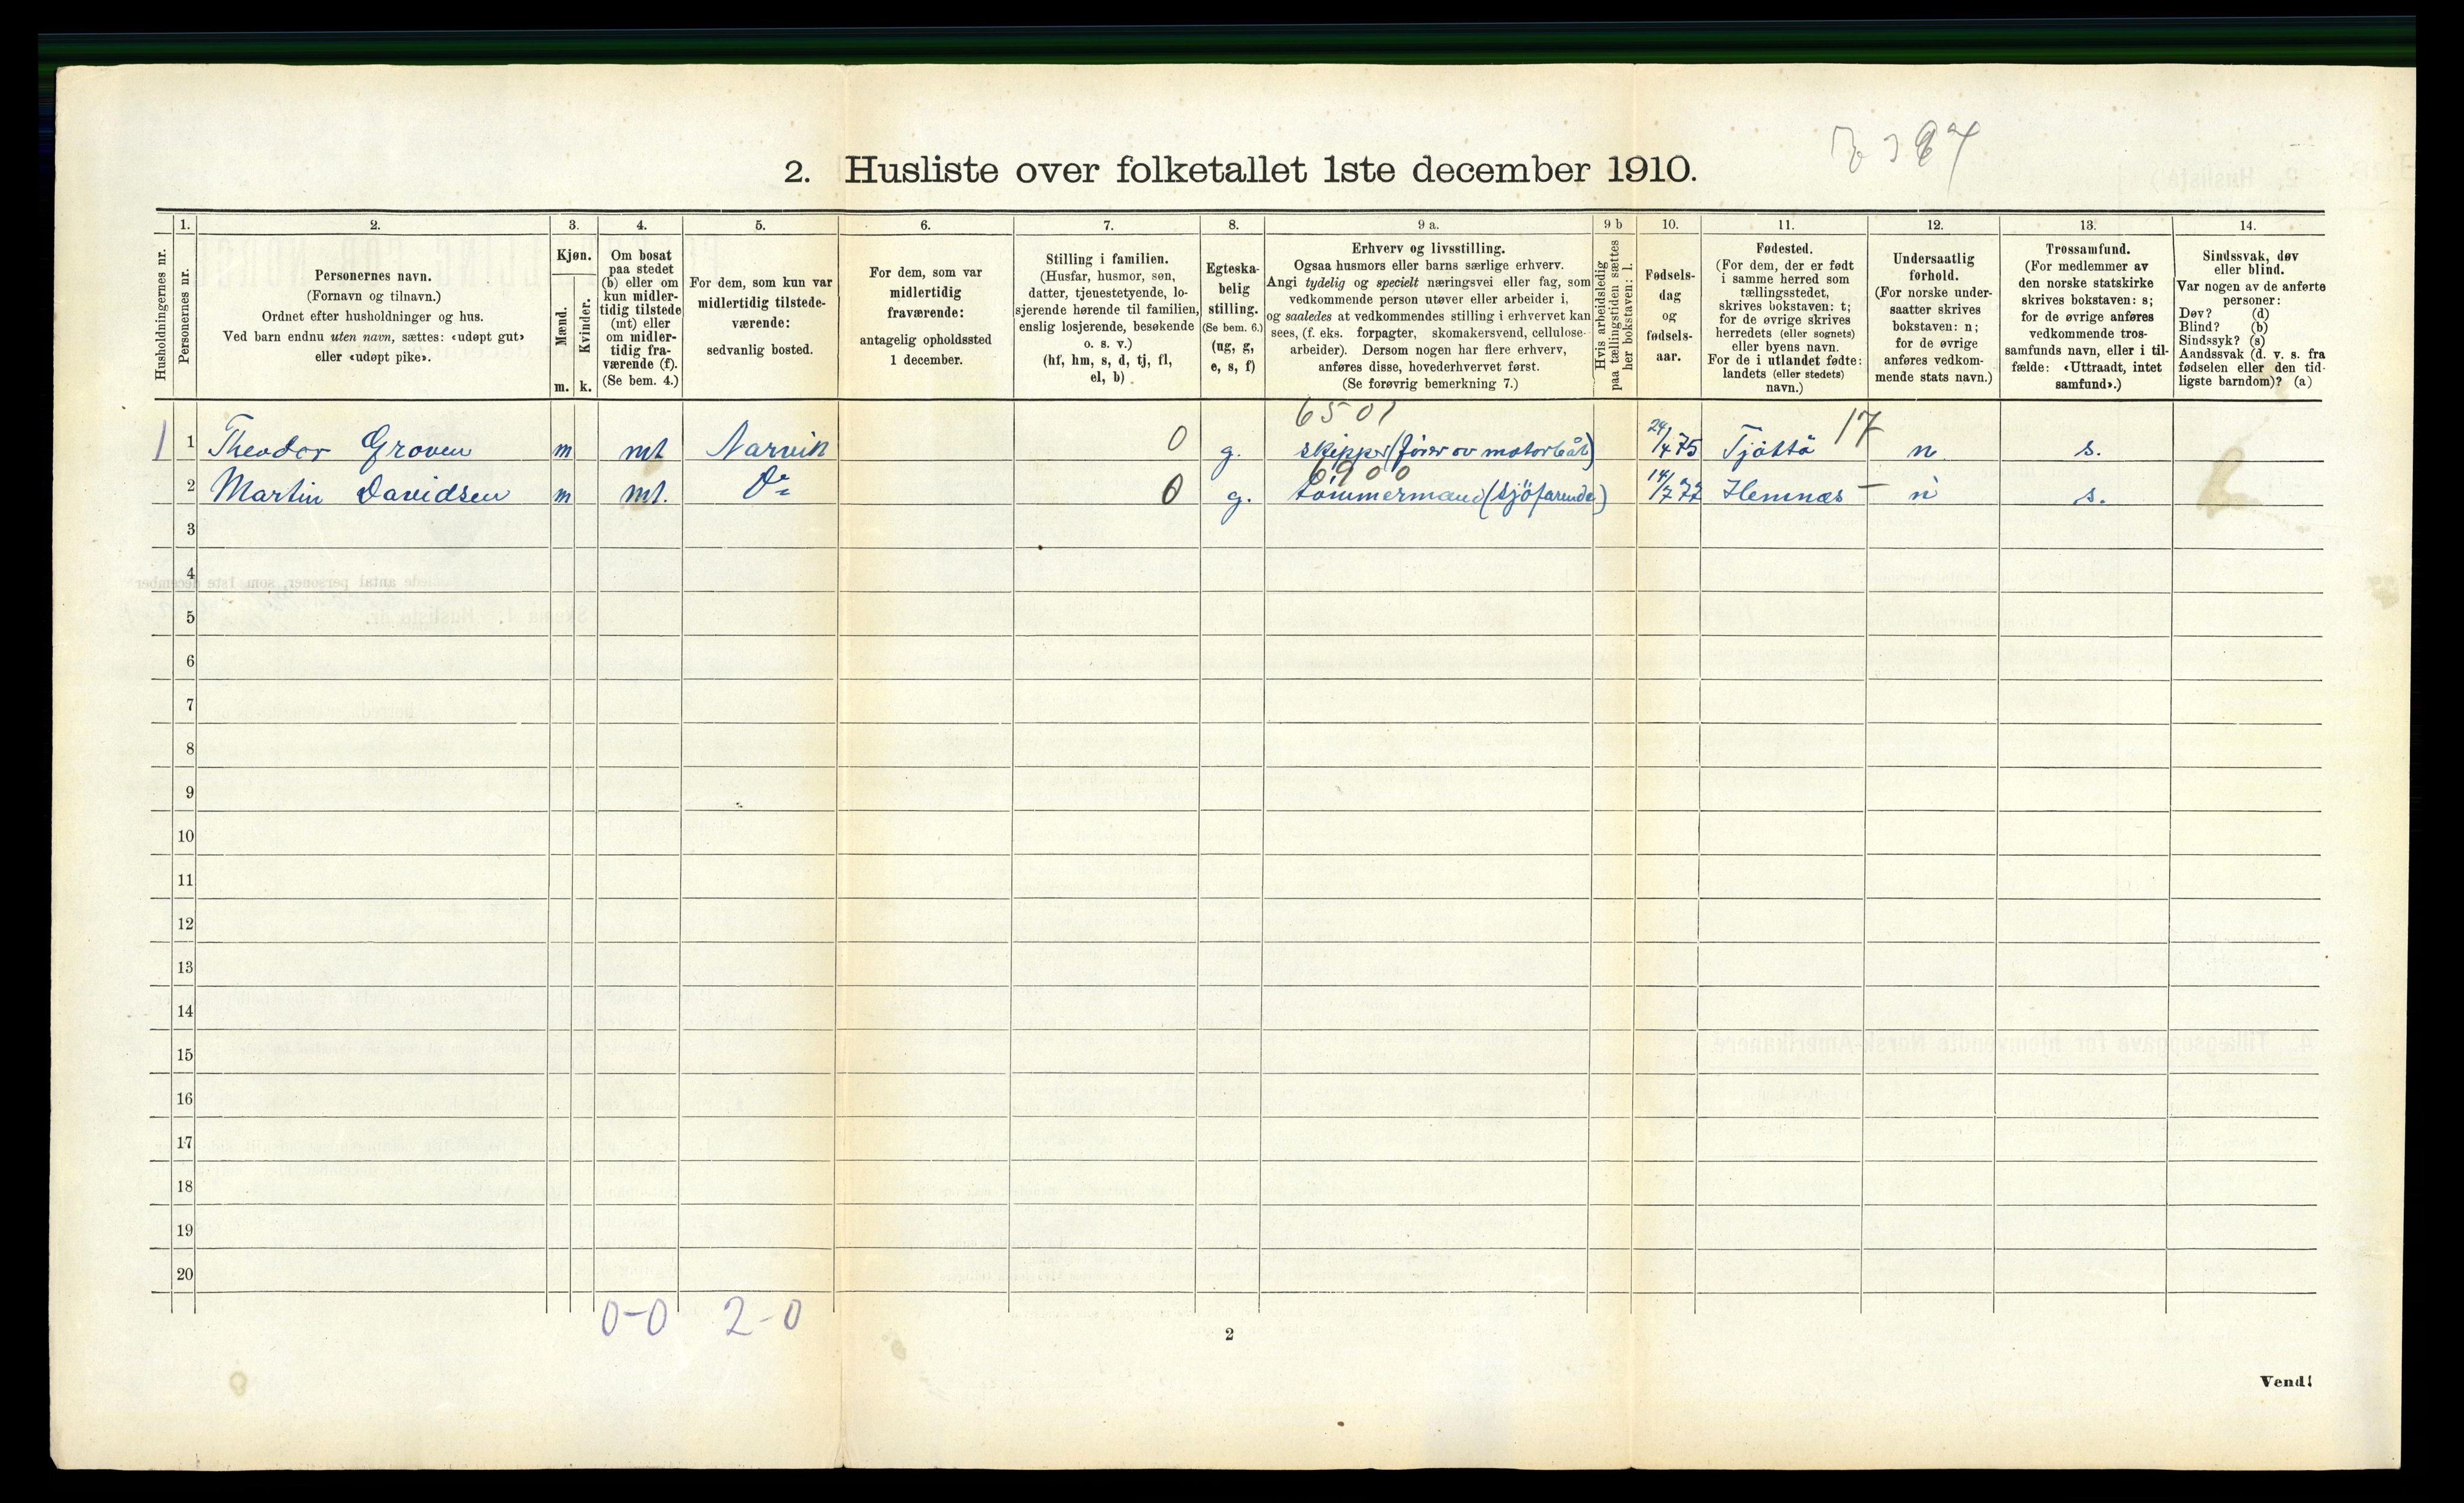 2. Husliste over folketallet 1ste december 1910.
1. 2. 3. 4. 5. 6. 7. 8. 9 a. 9 b 10. 11. 12. 13. 14.
Husholdningernes nr.
Personernes nr.
Personernes navn.
(Fornavn og tilnavn.)
Ordnet efter husholdninger og hus.
Ved barn endnu uten navn, sættes: «udøpt gut»
eller «udøpt pike».
Kjøn.
Mænd.
Kvinder.
m. k.
Om bosat
paa stedet
(b) eller om
kun midler-
tidig tilstede
(mt) eller
om midler-
tidig fra-
værende (f).
(Se bem. 4.)
For dem, som kun var
midlertidig tilstede-
værende:
sedvanlig bosted.
For dem, som var
midlertidig
fraværende:
antagelig opholdssted
1 december.
Stilling i familien.
(Husfar, husmor, søn,
datter, tjenestetyende, lo-
sjerende hørende til familien,
enslig losjerende, besøkende
o. s. v.)
(hf, hm, s, d, tj, fl,
el, b)
Egteska-
belig
stilling.
(Se bem. 6.)
(ug, g,
e, s, f)
Erhverv og livsstilling.
Ogsaa husmors eller barns særlige erhverv.
Angi tydelig og specielt næringsvei eller fag, som
vedkommende person utøver eller arbeider i,
og saaledes at vedkommendes stilling i erhvervet kan
sees, (f. eks. forpagter, skomakersvend, cellulose-
arbeider). Dersom nogen har flere erhverv,
anføres disse, hovederhvervet først.
(Se forøvrig bemerkning 7.)
Hvis arbeidsledig
paa tællingstiden sættes
her bokstaven: l.
Fødsels-
dag
og
fødsels-
aar.
Fødested.
(For dem, der er født
i samme herred som
tællingsstedet,
skrives bokstaven: t;
for de øvrige skrives
herredets (eller sognets)
eller byens navn.
For de i utlandet fødte:
landets (eller stedets)
navn.)
Undersaatlig
forhold.
(For norske under-
saatter skrives
bokstaven: n;
for de øvrige
anføres vedkom-
mende stats navn.)
Trossamfund.
(For medlemmer av
den norske statskirke
skrives bokstaven: s;
for de øvrige anføres
vedkommende tros-
samfunds navn, eller i til-
fælde: «Uttraadt, intet
samfund».)
Sindssvak, døv
eller blind.
Var nogen av de anførte
personer:
Døv? (d)
Blind? (b)
Sindssyk? (s)
Aandssvak (d. v. s. fra
fødselen eller den tid-
ligste barndom)? (a)
6501 17
1 1 Theodor Groven m mt Narvik 0 g. skipper (fører av motorbåt) 24/4 75 Tjøttø n s.
6900
2 Martin Davidsen m mt. Do 0 g. tömmermand (sjöfarende) 14/7 77 Hemnæs – n s.
3
4
5
6
7
8
9
10
11
12
13
14
15
16
17
18
19
20
0-0 2-0
2
Vend!